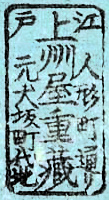 江戸
人形町通り
上州屋重藏
元大坂町代地